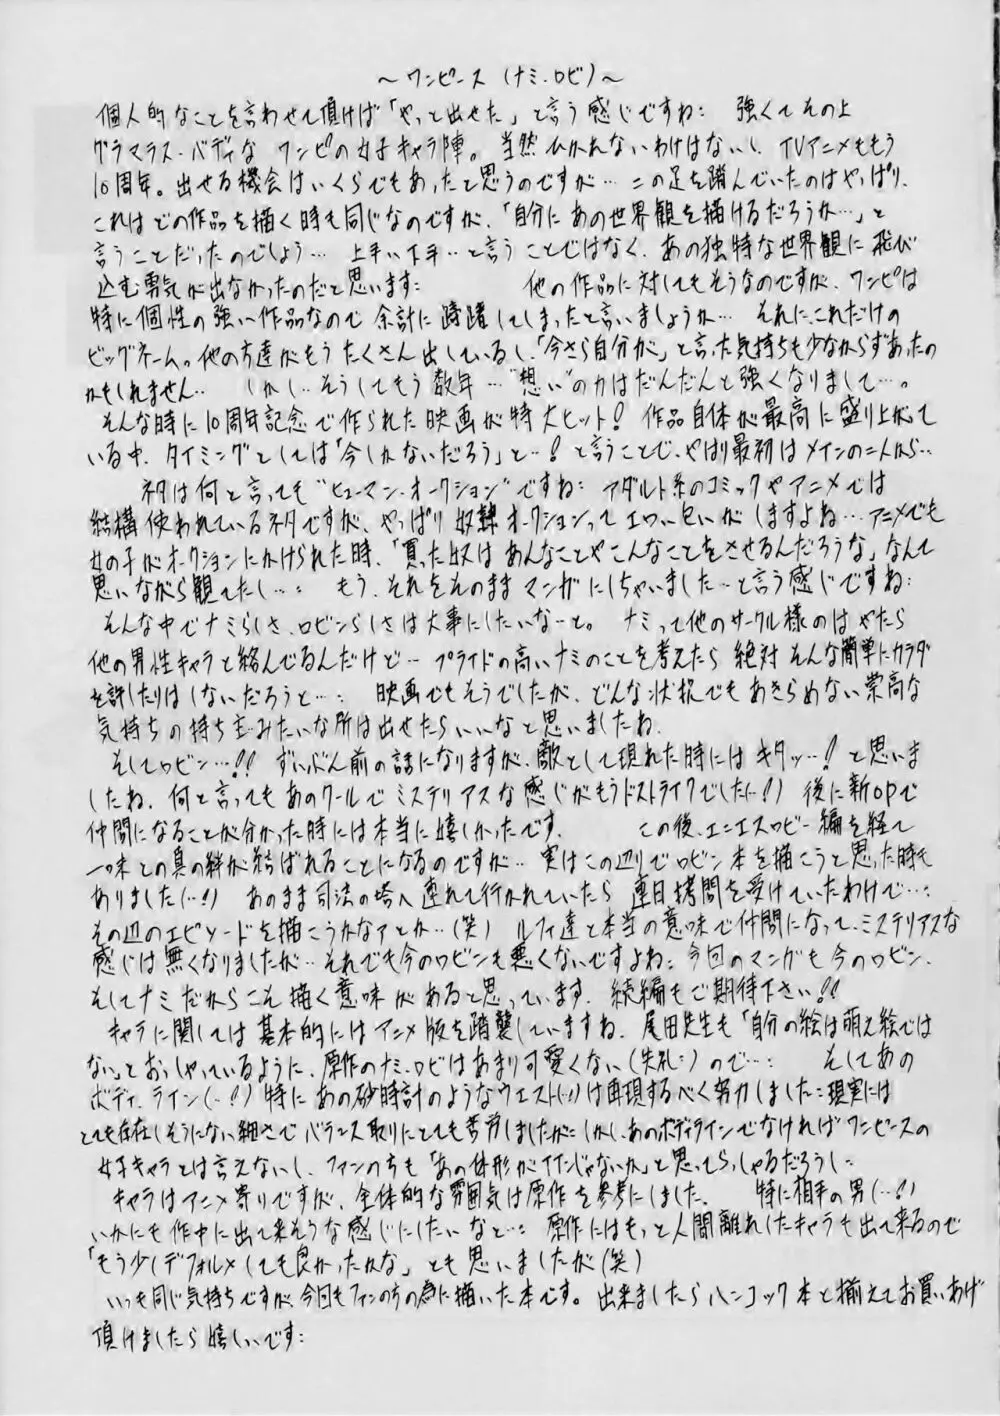 ～ワンピース（ナミ・ロビ）～
個人的なことを言わせて頂けば「やっと出せた」と言う感じですね： 強くてその上
グラマラス・バディな ワンピの女子キャラ陣。当然ひかれないわけはないし、TVアニメももう
10周年。出せる機会はいくらでもあったと思うのですが… 二の足を踏んでいたのはやっぱり、
これはどの作品を描く時も同じなのですが、「自分にあの世界観を描けるだろうか…」と
言うことだったのでしょう… 上手い下手‥と言うことではなく、あの独特な世界観に飛び
込む勇気が出なかったのだと思います： 他の作品に対してもそうなのですが、ワンピは
特に個性の強い作品なので余計に躊躇してしまったと言いましょうか… それに、これだけの
ビッグネーム。他の方達がもうたくさん出しているし、「今さら自分が」と言った気持ちも少なからずあったの
かもしれません‥ しかし‥そうしてもう数年…“想い”の力はだんだんと強くなりまして…。
そんな時に10周年記念で作られた映画が特大ヒット！ 作品自体が最高に盛り上がって
いる中、タイミングとしては「今しかないだろう」と…！と言うことで、やはり最初はメインの二人から‥
ネタは何と言っても“ヒューマン・オークション”ですね： アダルト系のコミックやアニメでは
結構使われているネタですが、やっぱり奴隷オークションってエロい匂いがしますよね…アニメでも
女の子がオークションにかけられた時、「買った奴は あんなことやこんなことをさせるんだろうな」なんて
思いながら観てたし…： もう、それをそのままマンガにしちゃいました…と言う感じですね：
そんな中でナミらしさ、ロビンらしさは大事にしたいなーと。 ナミって他のサークル様のはやたら
他の男性キャラと絡んでるんだけど… プライドの高いナミのことを考えたら絶対そんな簡単にカラダ
を許したりはしないだろうと…： 映画でもそうでしたが、どんな状況でもあきらめない崇高な
気持ちの持ち主みたいな所は出せたらいいなと思いましたね。
そしてロビン…!! ずいぶん前の話になりますが、敵として現れた時にはキタッ…！と思いま
したね。何と言ってもあのクールでミステリアスな感じがもうドストライクでした(…!) 後に新OPで
仲間になることが分かった時には本当に嬉しかったです。 この後、エニエスロビー編を経て
一味との真の絆が結ばれることになるのですが‥ 実はこの辺りでロビン本を描こうと思った時も
ありました(…!) あのまま司法の塔へ連れて行かれていたら 連日拷問を受けていたわけで…：
その辺のエピソードを描こうかなァとか‥(笑) ルフィ達と本当の意味で仲間になって、ミステリアスな
感じは無くなりましたが… それでも今のロビンも悪くないですよね： 今回のマンガも今のロビン、
そしてナミだからこそ描く意味があると思っています。続編もご期待下さい!!
キャラに関しては基本的にはアニメ版を踏襲していますね。尾田先生も「自分の絵は萌え絵では
ない」とおっしゃっているように、原作のナミ、ロビはあまり可愛くない(失礼：)ので…： そしてあの
ボディ・ライン(…!) 特にあの砂時計のようなウエスト(…!)は再現するべく努力しました：現実には
とても存在しそうにない細さでバランス取りにとても苦労しましたが： しかし、あのボディラインでなければワンピースの
女子キャラとは言えないし、ファンの方も「あの体形がイイんじゃないか」と思ってらっしゃるだろうし：
キャラはアニメ寄りですが、全体的な雰囲気は原作を参考にしました。 特に相手の男(…!)
いかにも作中に出て来そうな感じにしたいなと…： 原作にはもっと人間離れしたキャラも出て来るので
「もう少しデフォルメしても良かったかな」とも思いましたが(笑)
いつも同じ気持ちですが、今回もファンの方の為に描いた本です。出来ましたらハンコック本と揃えてお買いあげ
頂けましたら嬉しいです：